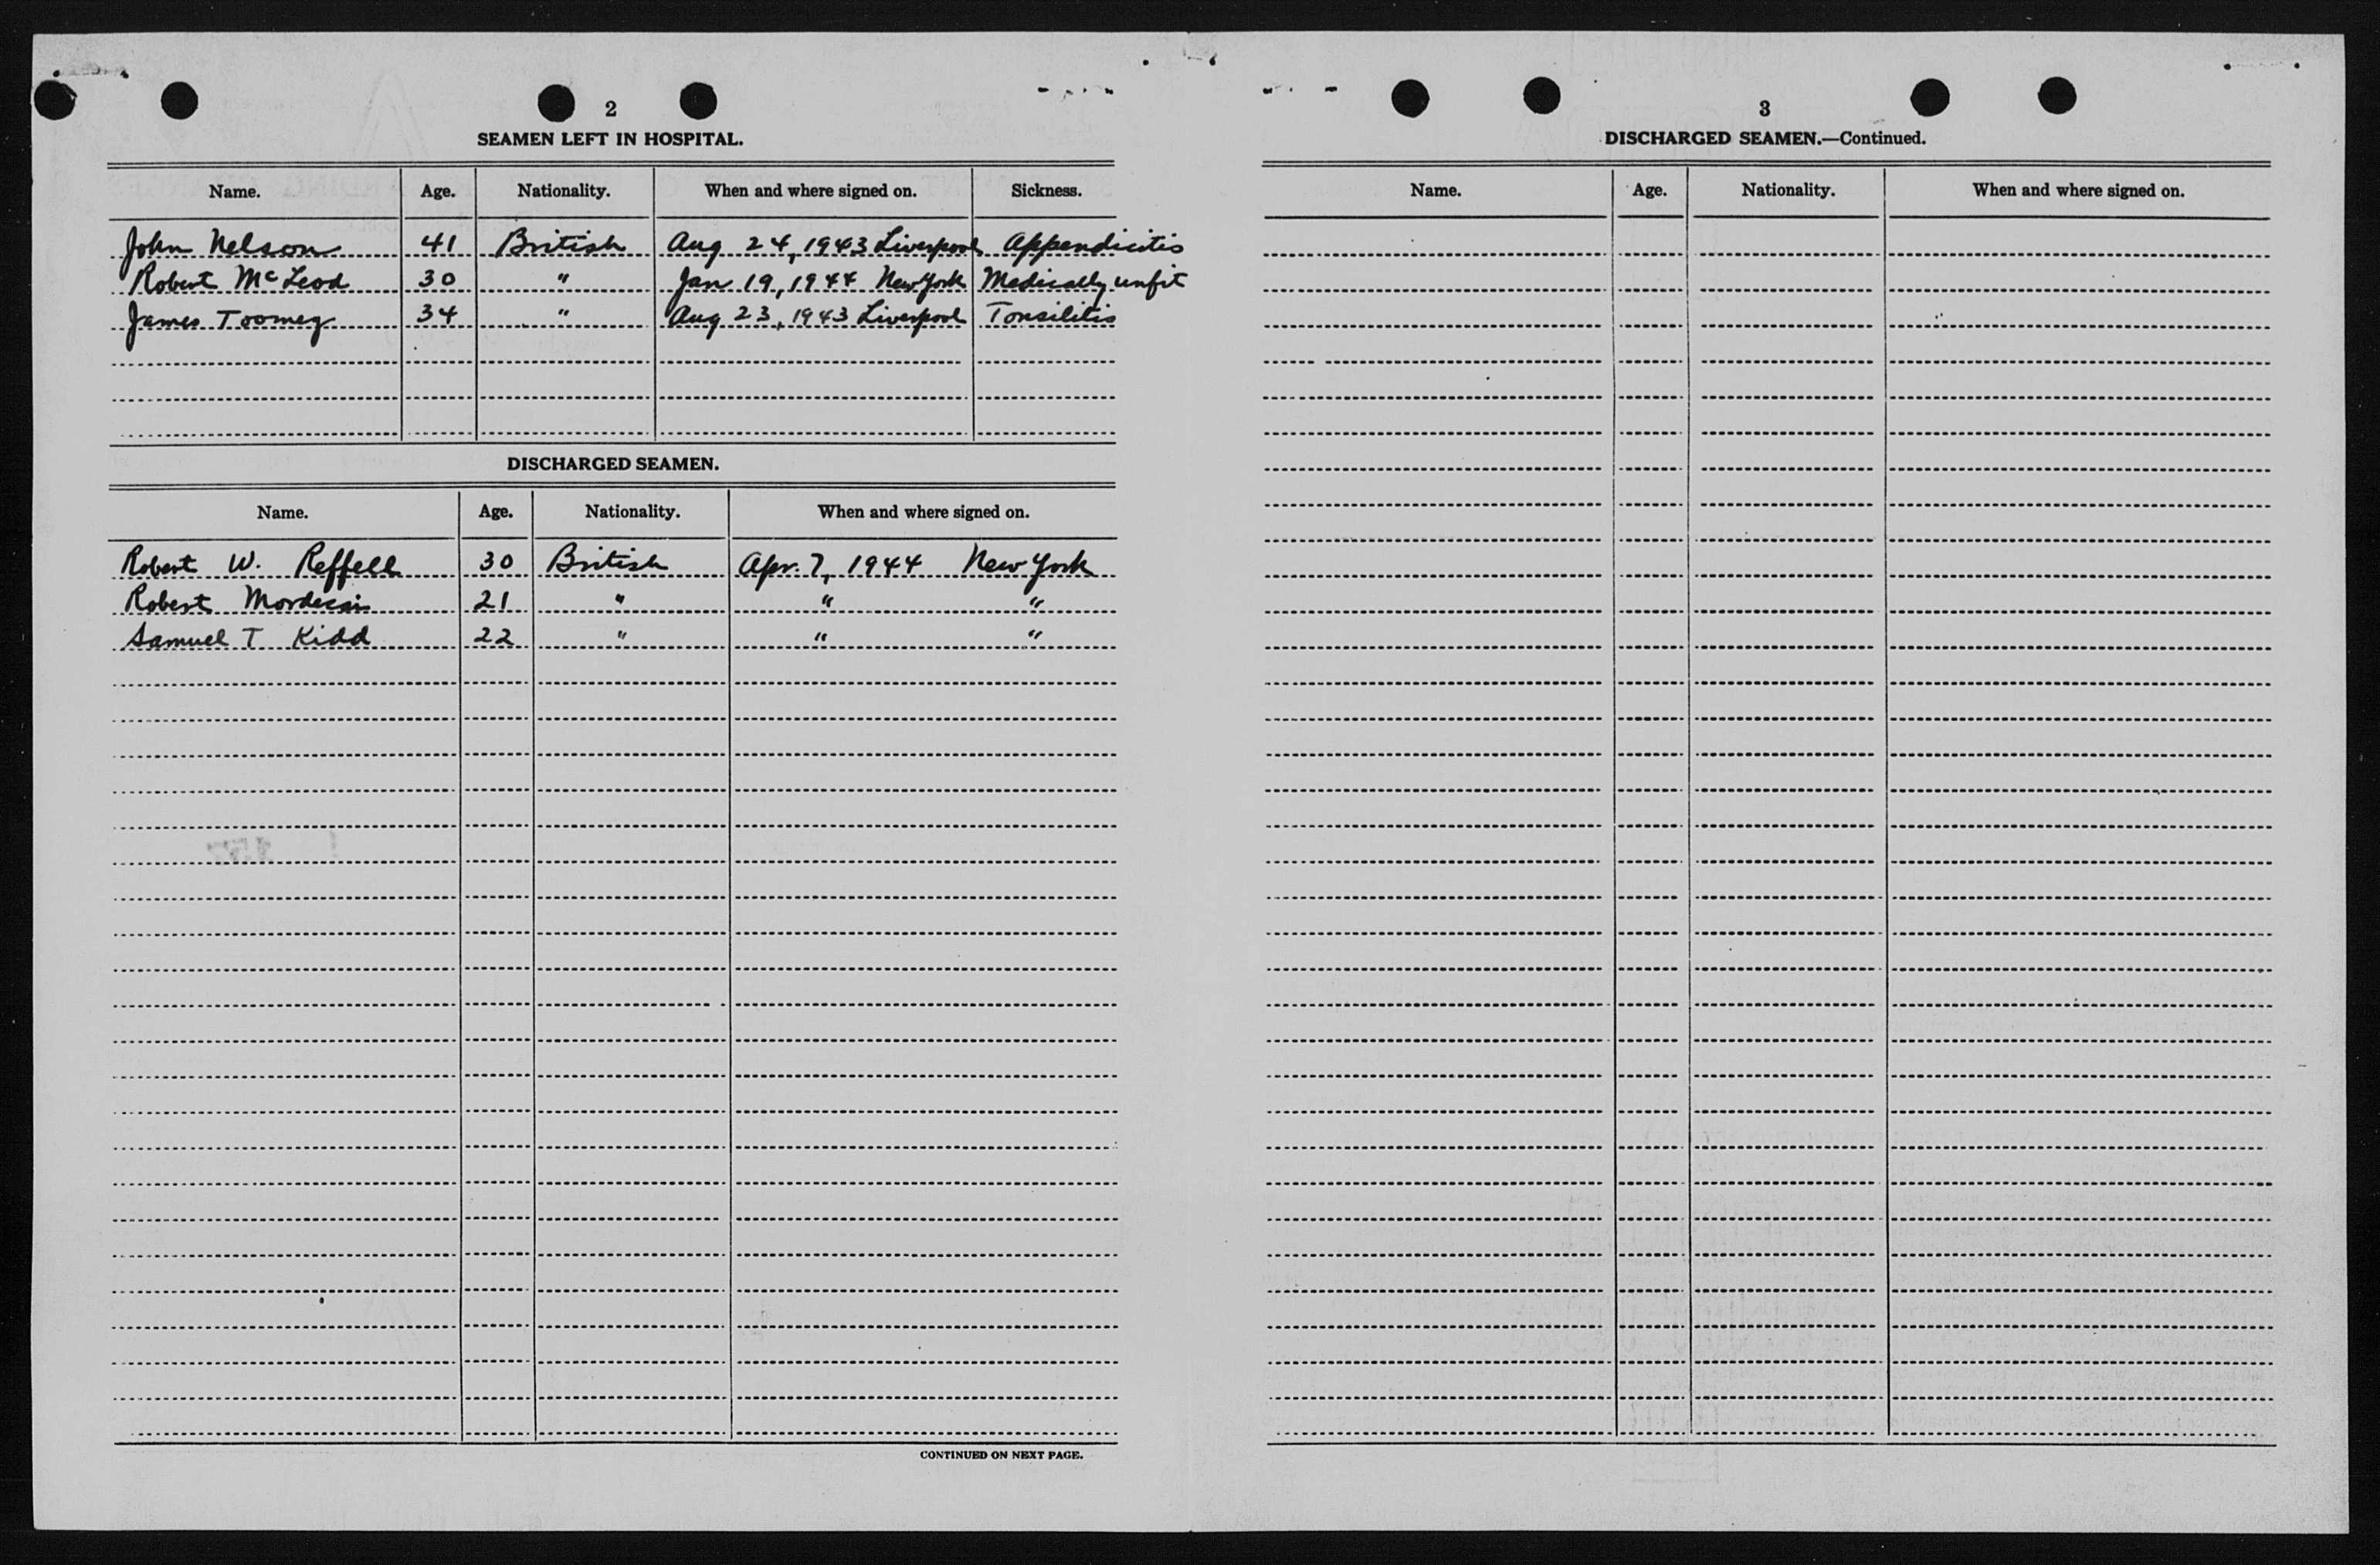 2
SEAMEN LEFT IN HOSPITAL.
Name. Age. Nationality. When and where signed on. Sickness.
John Nelson 41 British Aug 24, 1943 Liverpool Appendicitis
Robert McLeod 30 " Jan 19, 1944 New York Medically unfit
James Toomey 34 " Aug 23, 1943 Liverpool Tonsilitis
DISCHARGED SEAMEN.
Name. Age. Nationality. When and where signed on.
Robert W. Reffell 30 British Apr. 7, 1944 New York
Robert Mordecai 21 " " "
Samuel T Kidd 22 " " "
CONTINUED ON NEXT PAGE.
3
DISCHARGED SEAMEN.—Continued.
Name. Age. Nationality. When and where signed on.